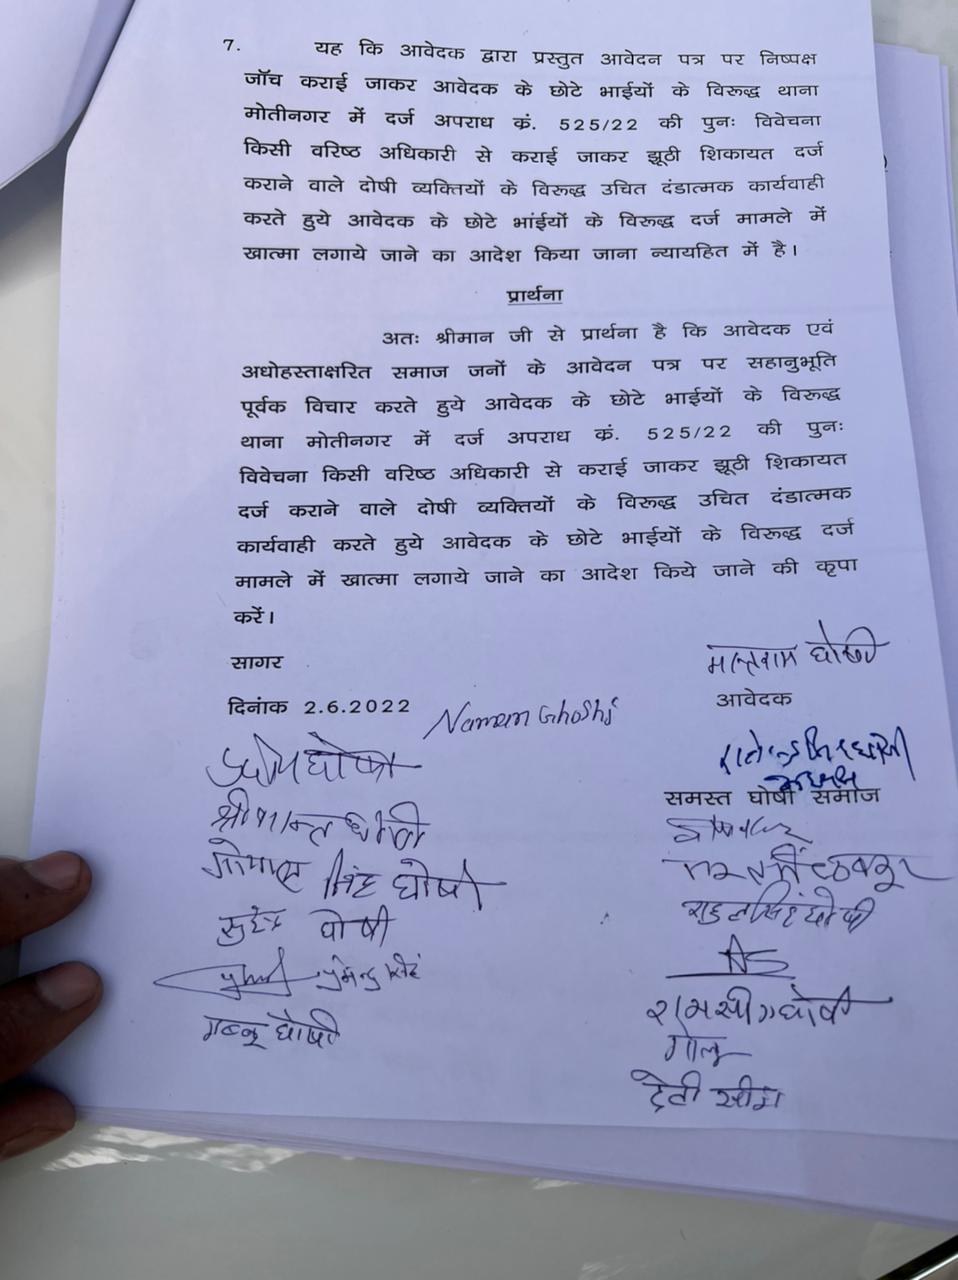 7. यह कि आवेदक द्वारा प्रस्तुत आवेदन पत्र पर निष्पक्ष
जॉच कराई जाकर आवेदक के छोटे भाईयों के विरूद्ध थाना
मोतीनगर में दर्ज अपराध क्रं. 525/22 की पुनः विवेचना
किसी वरिष्ठ अधिकारी से कराई जाकर झूठी शिकायत दर्ज
कराने वाले दोषी व्यक्तियों के विरूद्ध उचित दंडात्मक कार्यवाही
करते हुये आवेदक के छोटे भांईयों के विरूद्ध दर्ज मामले में
खात्मा लगाये जाने का आदेश किया जाना न्यायहित में है।
प्रार्थना
अतः श्रीमान जी से प्रार्थना है कि आवेदक एवं
अधोहस्ताक्षरित समाज जनों के आवेदन पत्र पर सहानुभूति
पूर्वक विचार करते हुये आवेदक के छोटे भाईयों के विरूद्ध
थाना मोतीनगर में दर्ज अपराध क्रं. 525/22 की पुनः
विवेचना किसी वरिष्ठ अधिकारी से कराई जाकर झूठी शिकायत
दर्ज कराने वाले दोषी व्यक्तियों के विरूद्ध उचित दंडात्मक
कार्यवाही करते हुये आवेदक के छोटे भाईयों के विरूद्ध दर्ज
मामले में खात्मा लगाये जाने का आदेश किये जाने की कृपा
करें।
सागर
घोषी
दिनांक 2.6.2022
आवेदक
Naman Ghoshi
घोषी
अध्यक्ष
समस्त घोषी समाज
श्रीकान्त घोषी
गोपाल सिंह घोषी
राहुल सिंह घोषी
सुरेन्द्र घोषी
गब्बू घोषी
घोषी
गोलू
देवी